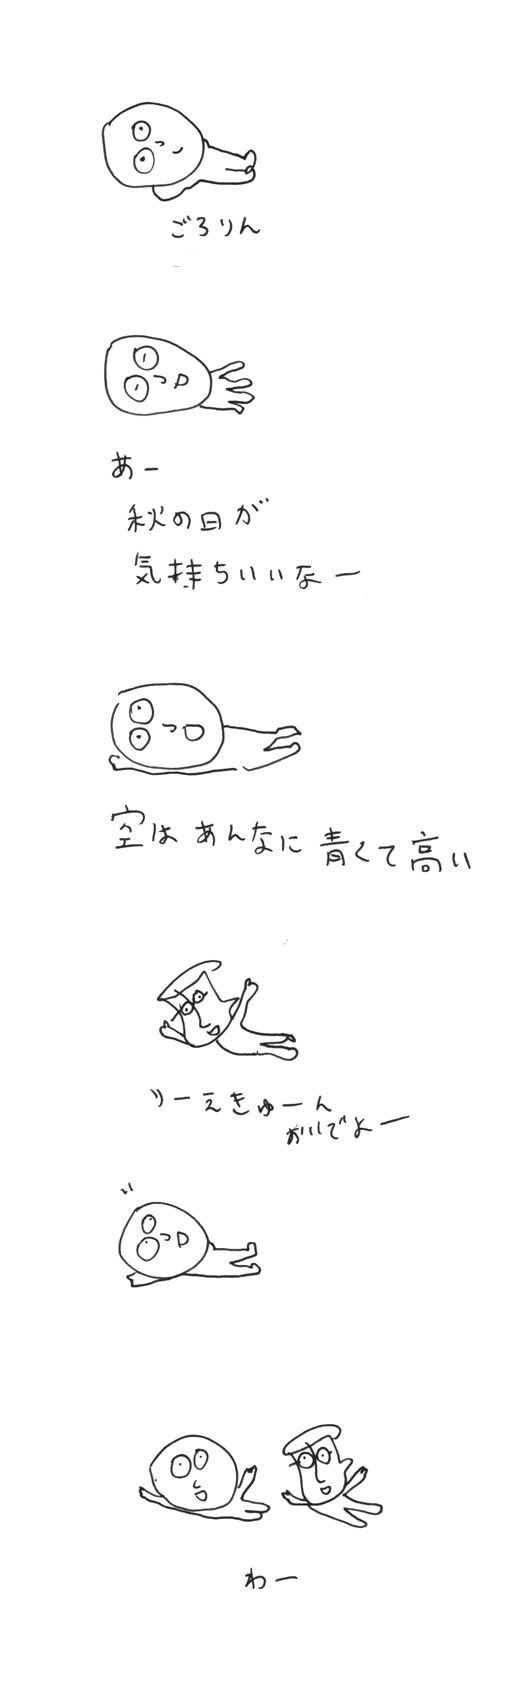 ごろりん
あー
秋の日が
気持ちいいなー
空はあんなに青くて高い
ソーえきゅーん
おいでよー
わー